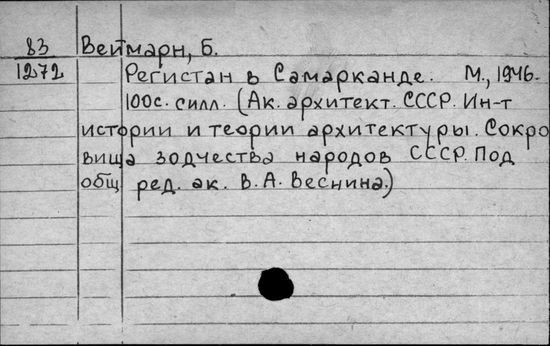 83 Веймарн, Б.
1272 Регистан в Самарканде. М., 1946.
100с. силл. (Ак. архитект. СССР. Ин-т
истории и теории архитектуры. Сокро
вища зодчества народов СССР. Под
общ. ред. ак. В. А. Веснина.)